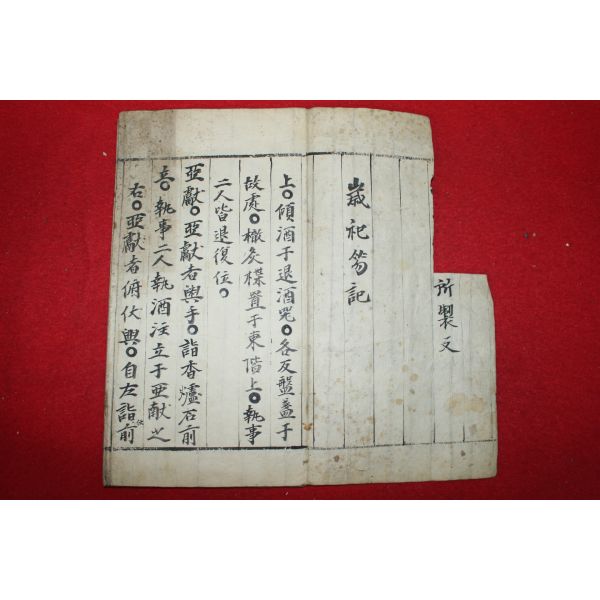 所製文
歲祀笏記
上○傾酒于退酒器○各反盤盖于
故處○撤炙楪置于東階上○執事
二人皆退復位○
亞獻○亞獻者興手○詣香爐石前
立○執事二人執酒注立于亞献之
右○亞獻者俯伏興○自左詣前